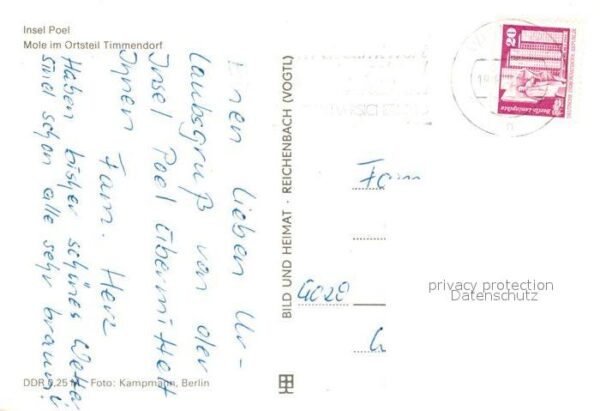 Insel Poel
Mole im Ortsteil Timmendorf
einen lieben Ur-
laubsgruß von der
Insel Poel übermittelt
Ihnen Fam. Herz
Haben bisher schönes Wetter
sind schon alle sehr braun!
DDR 0,25 M Foto: Kampmann, Berlin
BILD UND HEIMAT · REICHENBACH (VOGTL)
20
Berlin-Leninplatz
Fam
4020
privacy protection
Datenschutz